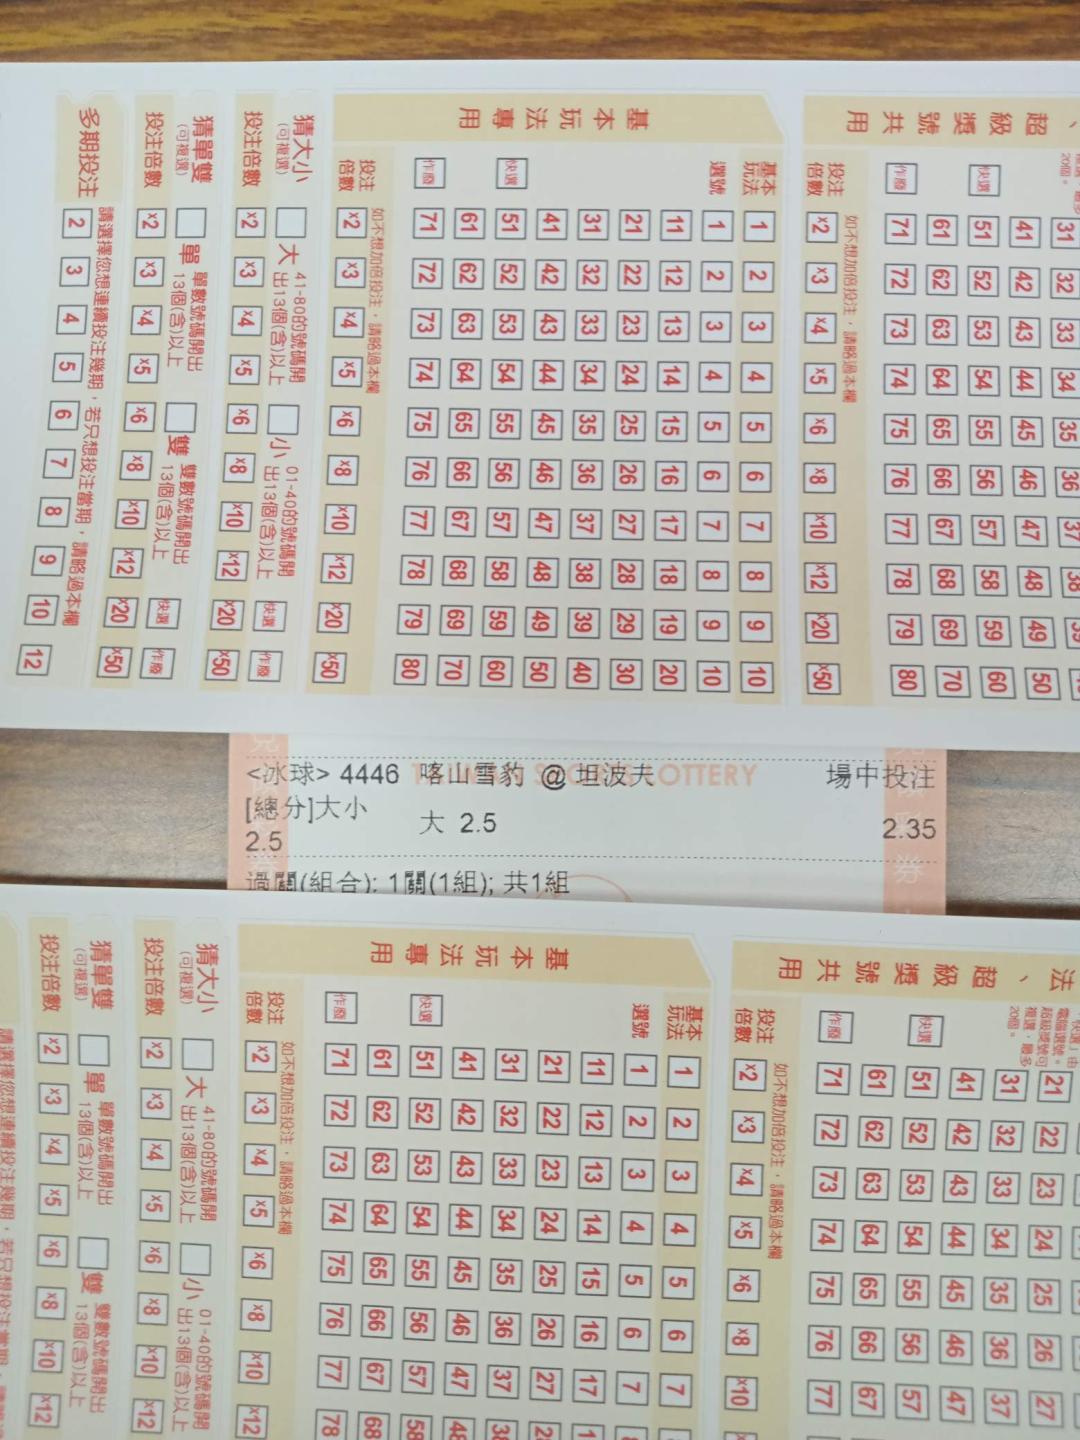 基本玩法專用
超級獎號共用
多期投注
請選擇您想連續投注幾期，若只想投注當期，請略過本欄
2 3 4 5 6 7 8 9 10 12
猜單雙
(可複選)
投注倍數
單 單數號碼開出
13個(含)以上
雙 雙數號碼開出
13個(含)以上
快選
作廢
x2 x3 x4 x5 x6 x8 x10 x12 x20 x50
猜大小
(可複選)
投注倍數
大 41-80的號碼開
出13個(含)以上
小 01-40的號碼開
出13個(含)以上
快選
作廢
x2 x3 x4 x5 x6 x8 x10 x12 x20 x50
投注倍數
如不想加倍投注，請略過本欄
x2 x3 x4 x5 x6 x8 x10 x12 x20 x50
作廢
快選
選號
基本玩法
1 2 3 4 5 6 7 8 9 10
1 2 3 4 5 6 7 8 9 10
11 12 13 14 15 16 17 18 19 20
21 22 23 24 25 26 27 28 29 30
31 32 33 34 35 36 37 38 39 40
41 42 43 44 45 46 47 48 49 50
51 52 53 54 55 56 57 58 59 60
61 62 63 64 65 66 67 68 69 70
71 72 73 74 75 76 77 78 79 80
投注倍數
如不想加倍投注，請略過本欄
x2 x3 x4 x5 x6 x8 x10 x12 x20 x50
作廢
快選
31 32 33 34 35 36 37 38
41 42 43 44 45 46 47 48 49 50
51 52 53 54 55 56 57 58 59 60
61 62 63 64 65 66 67 68 69 70
71 72 73 74 75 76 77 78 79 80
<冰球> 4446 喀山雪豹 @ 坦波夫 場中投注
[總分]大小
大 2.5
2.5 2.35
過關(組合): 1關(1組); 共1組
基本玩法專用
法、超級獎號共用
猜單雙
(可複選)
投注倍數
單 單數號碼開出
13個(含)以上
雙 雙數號碼開出
13個(含)以上
x2 x3 x4 x5 x6 x8 x10 x12
猜大小
(可複選)
投注倍數
大 41-80的號碼開
出13個(含)以上
小 01-40的號碼開
出13個(含)以上
x2 x3 x4 x5 x6 x8 x10 x12
投注倍數
如不想加倍投注，請略過本欄
x2 x3 x4 x5 x6 x8 x10 x12
作廢
快選
選號
基本玩法
1 2 3 4 5 6 7
1 2 3 4 5 6 7 8
11 12 13 14 15 16 17
21 22 23 24 25 26 27
31 32 33 34 35 36 37 38
41 42 43 44 45 46 47 48
51 52 53 54 55 56 57 58
61 62 63 64 65 66 67 68
71 72 73 74 75 76 77 78
投注倍數
如不想加倍投注，請略過本欄
x2 x3 x4 x5 x6 x8 x10
作廢
快選
21 22 23 24 25 26 27
31 32 33 34 35 36 37
41 42 43 44 45 46 47
51 52 53 54 55 56 57
61 62 63 64 65 66 67
71 72 73 74 75 76 77